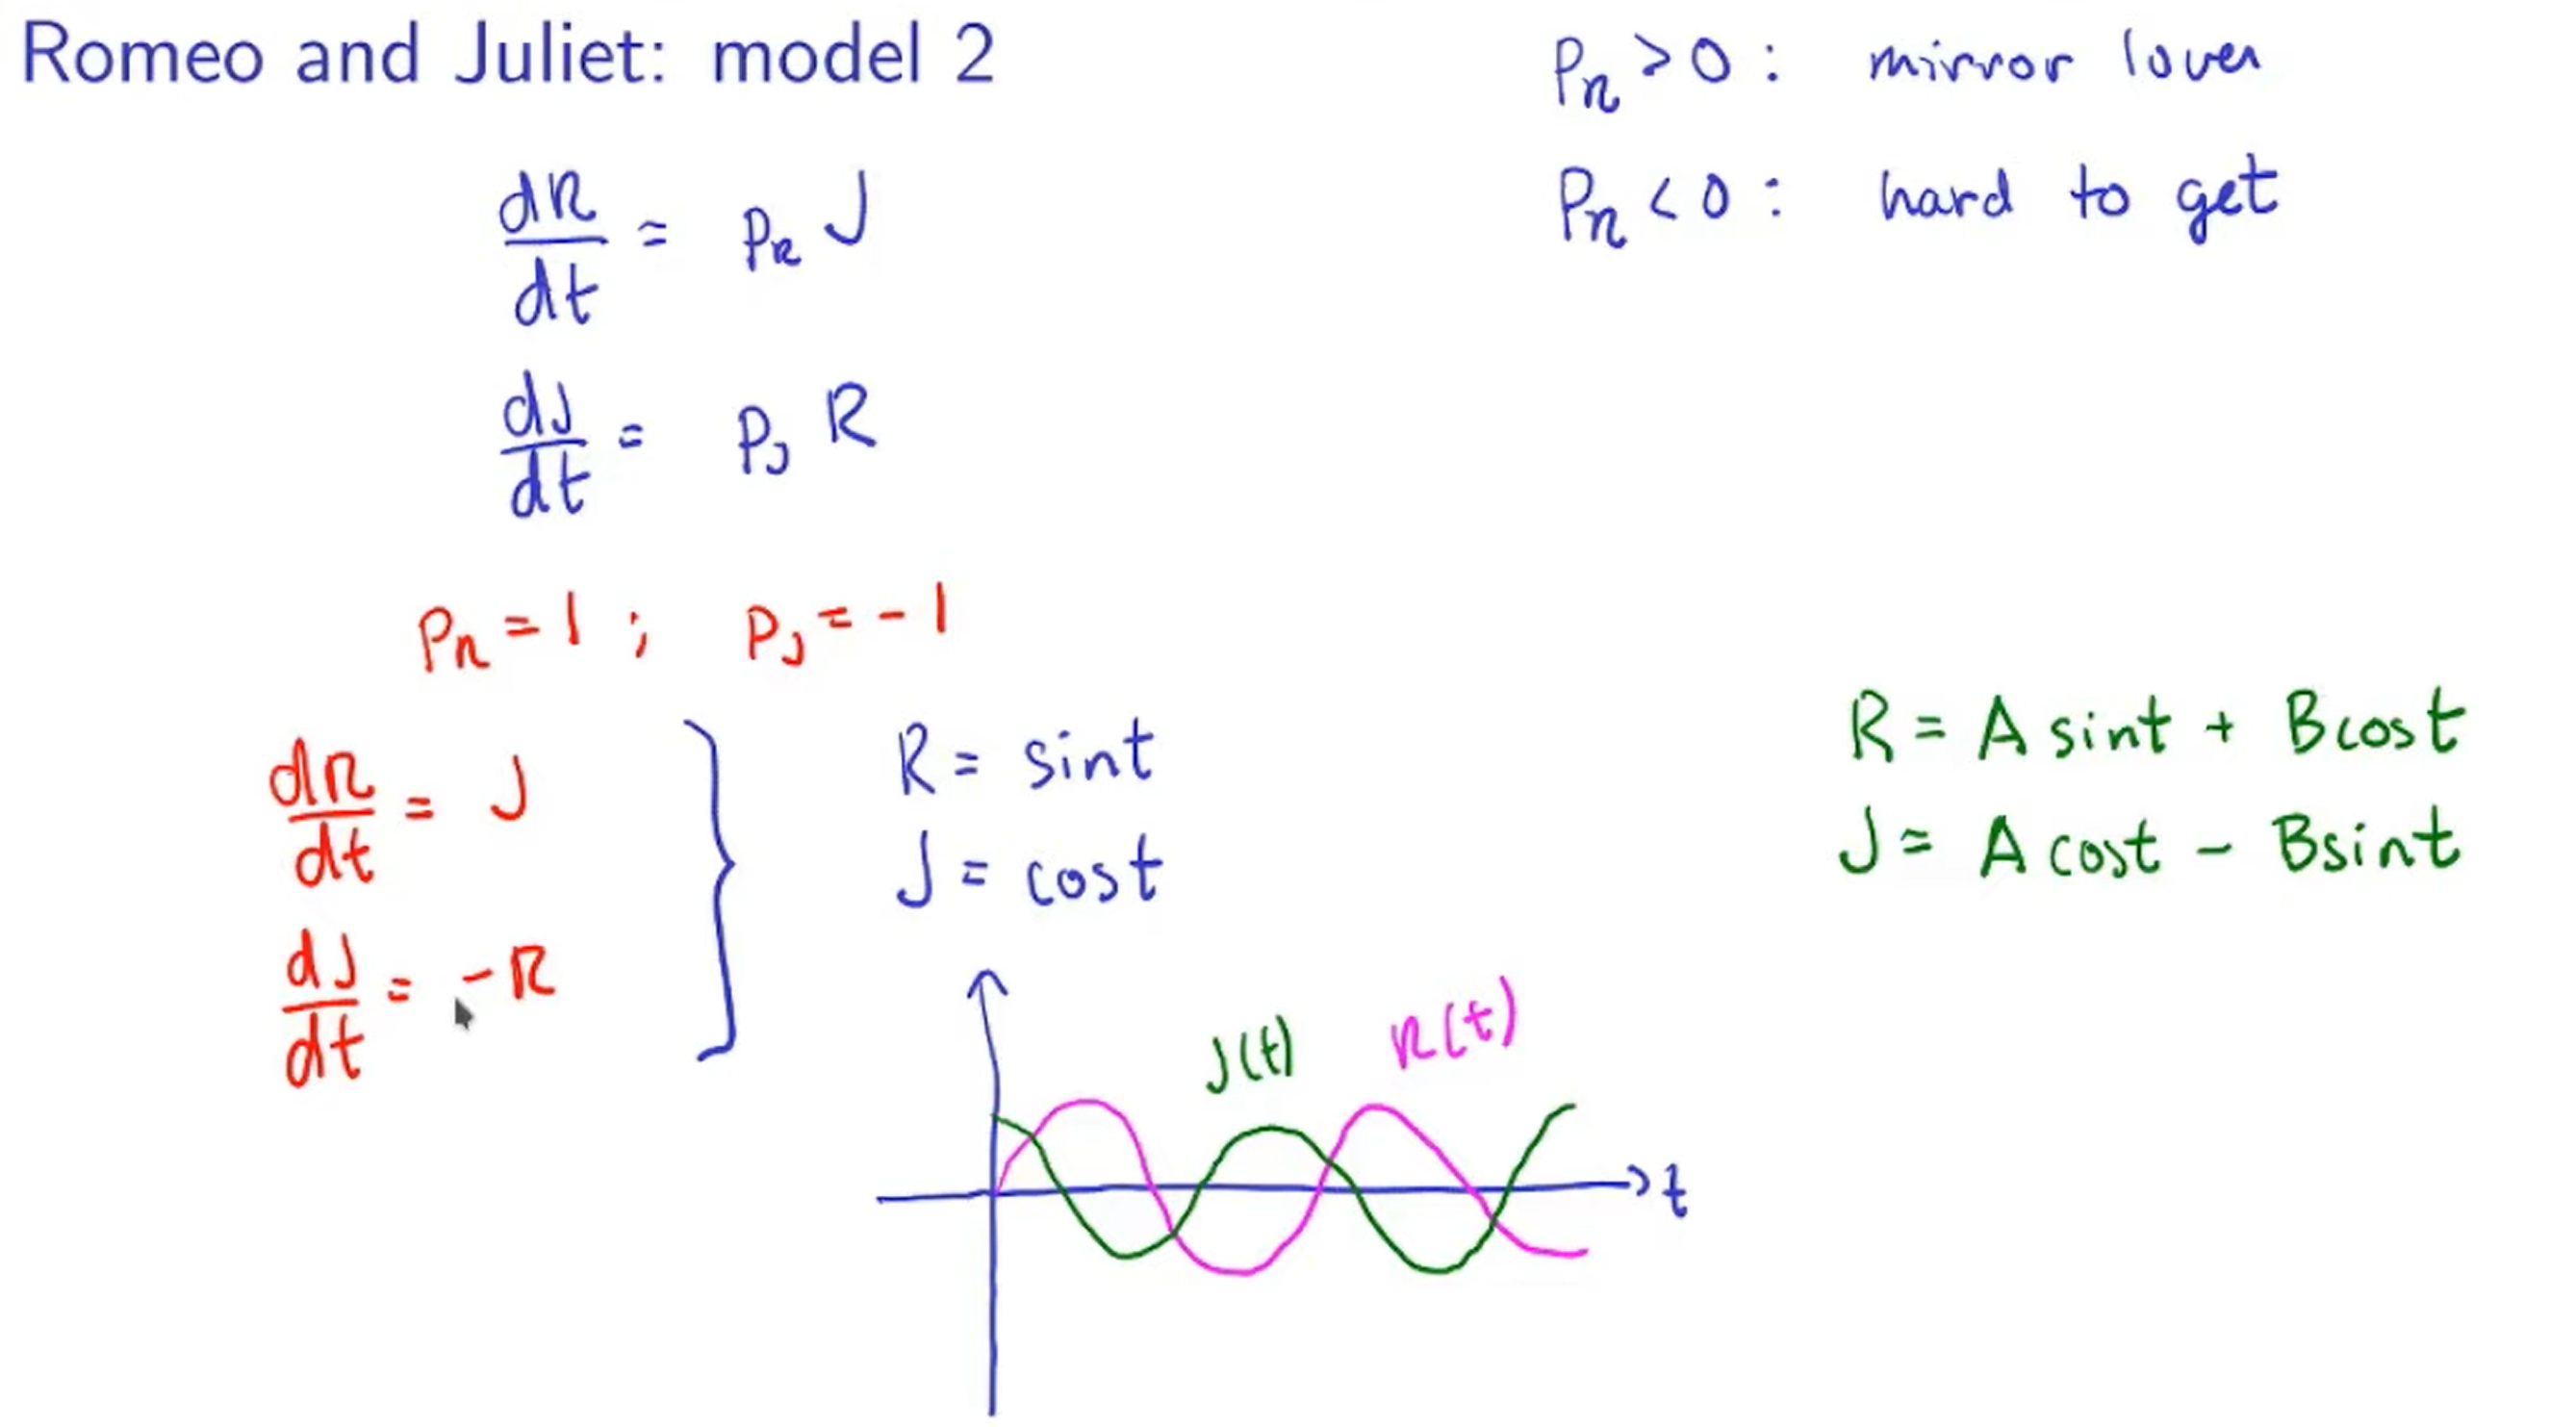 Romeo and Juliet: model 2
P_R > 0 : mirror lover
P_R < 0 : hard to get
dR/dt = P_R J
dJ/dt = P_J R
P_R = 1 ; P_J = -1
dR/dt = J
dJ/dt = -R
R = sint
J = cost
R = A sint + Bcost
J = A cost - Bsint
J(t) R(t)
t